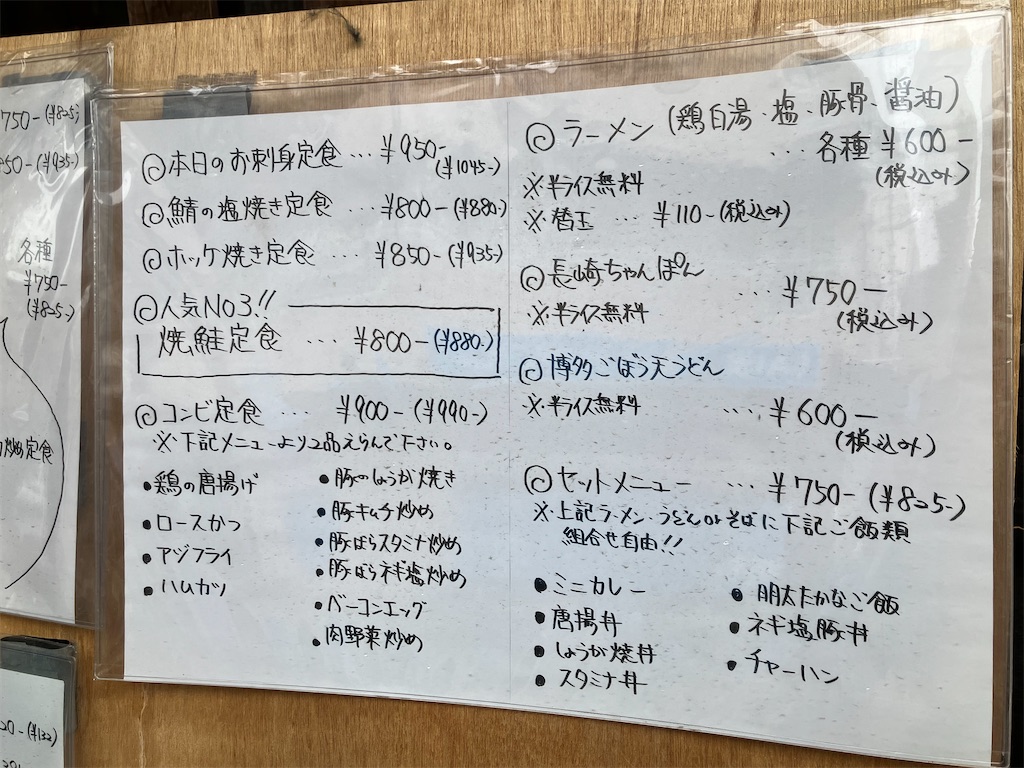 750-(¥825)
50-(¥935-)
各種
¥750-
(¥825-)
炒め定食
20-(¥132)
◎本日のお刺身定食 … ¥950-
(¥1045-)
◎鯖の塩焼き定食 … ¥800-(¥880-)
◎ホッケ焼き定食 … ¥850-(¥935-)
◎人気No3!!
焼鮭定食 … ¥800-(¥880-)
◎コンビ定食 … ¥900-(¥990-)
※下記メニューより2品えらんで下さい。
•鶏の唐揚げ
•ロースかつ
•アジフライ
•ハムカツ
•豚のしょうが焼き
•豚キムチ炒め
•豚ばらスタミナ炒め
•豚ばらネギ塩炒め
•ベーコンエッグ
•肉野菜炒め
◎ラーメン(鶏白湯、塩、豚骨、醤油)
… 各種¥600-
(税込み)
※半ライス無料
※替玉 … ¥110-(税込み)
◎長崎ちゃんぽん
… ¥750-
※半ライス無料
(税込み)
◎博多ごぼう天うどん
※半ライス無料
… ¥600-
(税込み)
◎セットメニュー … ¥750-(¥825-)
※上記ラーメン、うどんorそばに下記ご飯類
組合せ自由!!
•ミニカレー
•唐揚丼
•しょうが焼丼
•スタミナ丼
•明太たかなご飯
•ネギ塩豚丼
•チャーハン